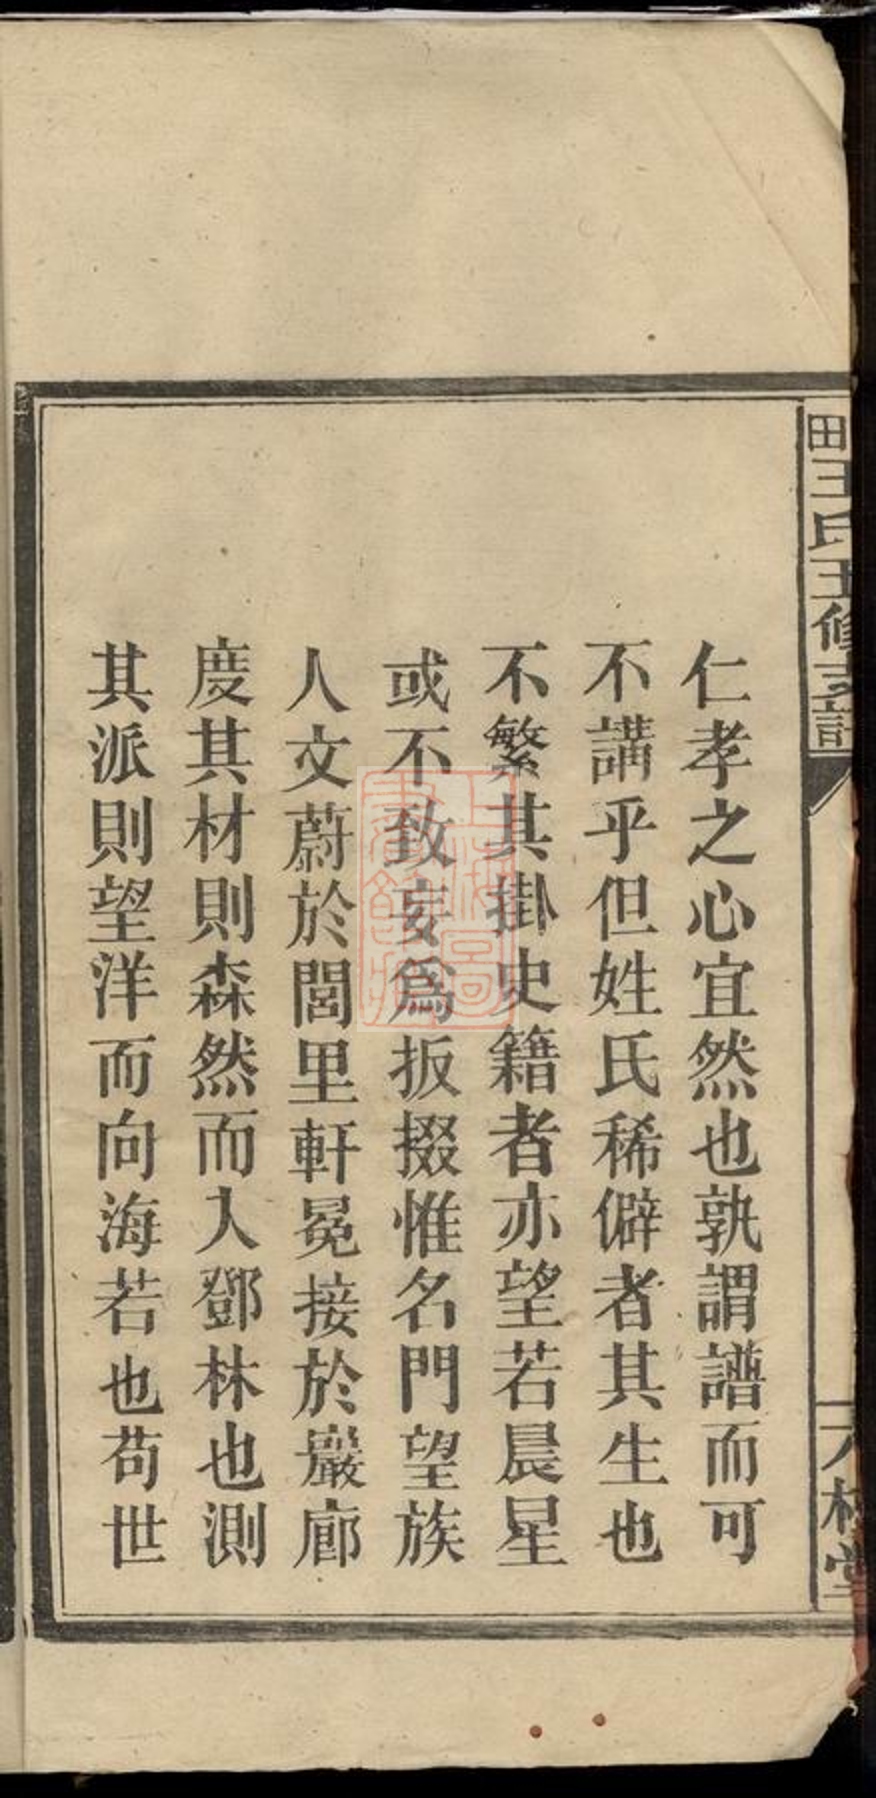 田王氏五修支譜
仁孝之心宜然也孰謂譜而可
不講乎但姓氏稀僻者其生也
不繁其掛史籍者亦望若晨星
或不致妄爲扳掇惟名門望族
人文蔚於閭里軒冕接於巖廊
度其材則森然而入鄧林也測
其派則望洋而向海若也苟世
上海圖書館藏